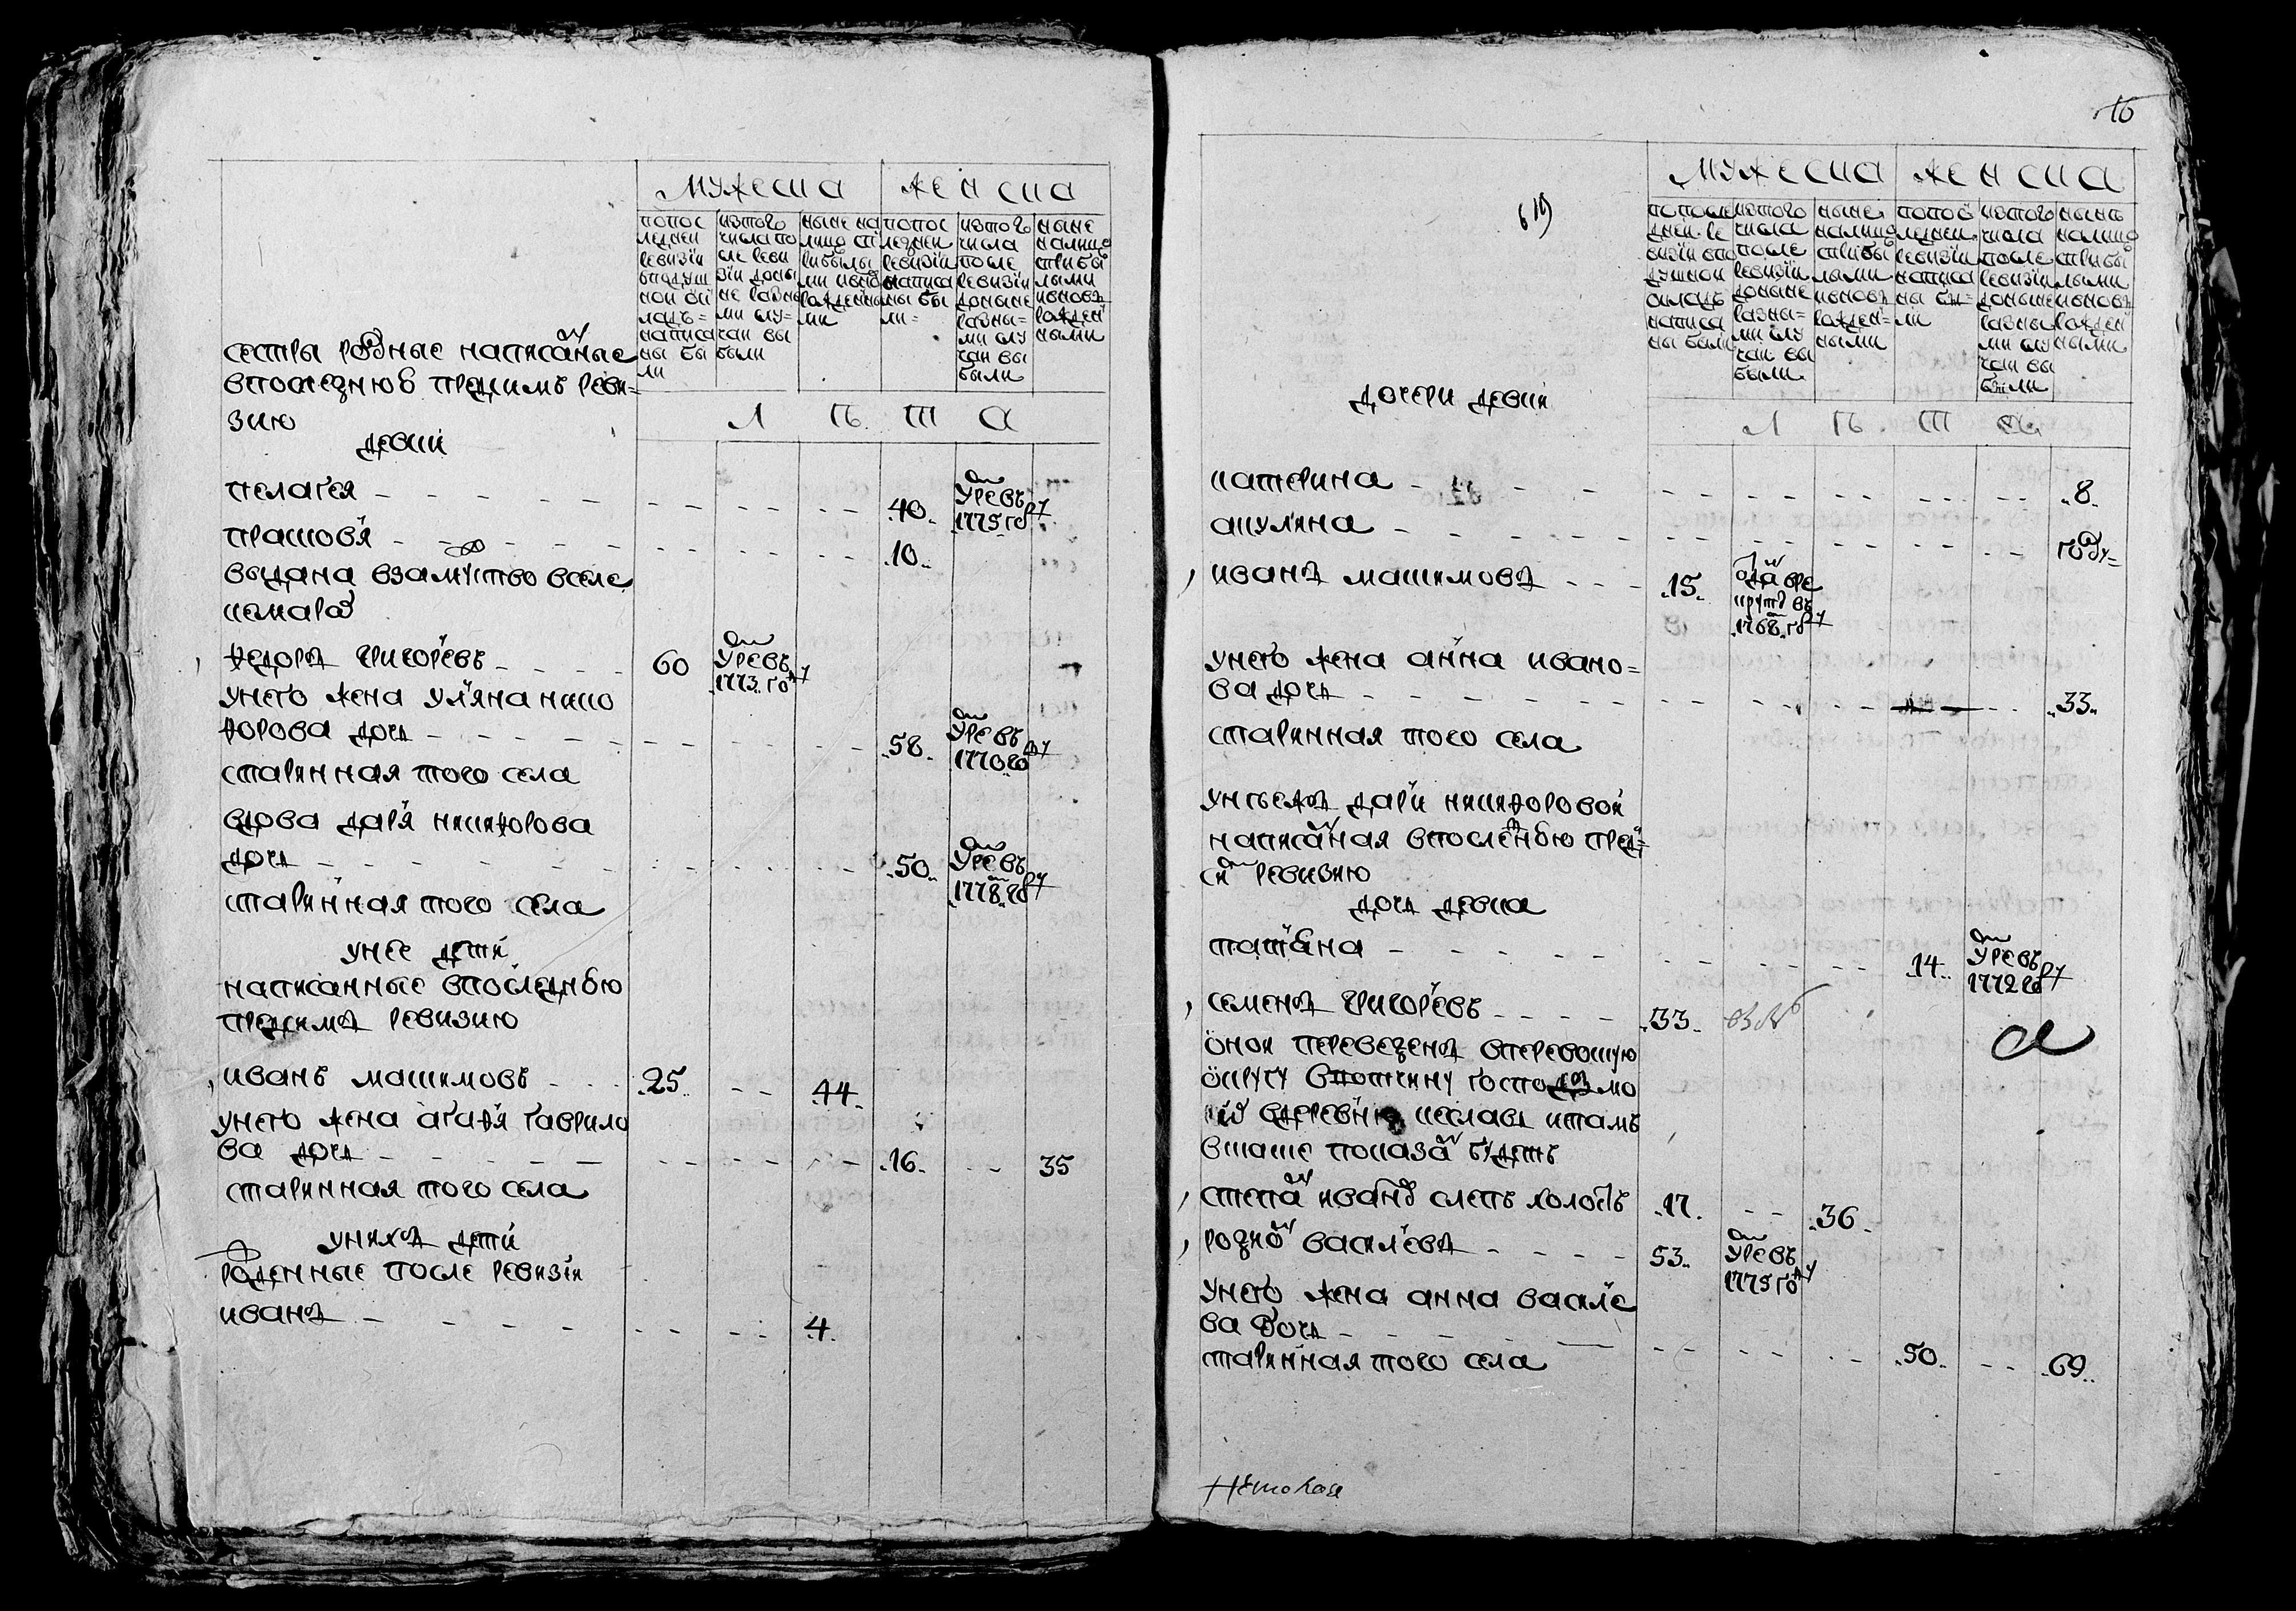 мужеска женска
попос
леднеи
ревизiи
вподуш
нои ок
ладъ=
написа
ны бы
ли
изтого
числа по
сле реви
зiи доны
не разны
ми слу=
чаи вы
были
ныне на
лицо при
были
ми ивно
рожденны
ми
попос
леднеи
ревизiи
написа
ны бы
ли=
изтого
числа
после
ревизiи
доныне
разны=
ми слу
чаи вы
были
ныне
налицо
прибы
лыми
ивновъ
рожден
ными
лѣта
сестры родные написаные
впоследнюю предсимъ реви=
зию
девки
пелагея 40. умре въ 1775 году
прасковя 10.
выдана взамуство вселе
кемаров
Ѳедоръ григоревъ 60 умре въ 1773 году
унего жена уляна никио
Ѳорова дочь 58. умре въ 1770 году
старинная того села
вдова даря никиѲорова
дочь 50. умре въ 1778 году
старинная того села
унее дети
написанные впоследнюю
предсимъ ревизию
иванъ максимовъ 25. 44.
унего жена агаѲя гаврило
ва дочь 16. 35
старинная того села
унихъ дети
рожденные после ревизiи
иванъ 4.
16
619
мужеска женска
попосле
дней ре
визiи впо
душнои
окладъ
написа
ны были
изтого
числа
после
ревизiи
доныне
разны=
ми слу
чаи вы
были
ныне
налицо
прибы
лыми
ивновъ
рожден=
ными
попос
леднеи
ревизiи
написа
ны бы=
ли
изтого
числа
после
ревизiи
доныне
разны
ми слу
чаи вы
были
нынѣ
налицо
прибы
лыми
ивновъ
рожден
ными
лѣта
дочери девки
катерина 8.
акулина году=
иванъ максимовъ 15. отдан вре
круты въ
1768. году
унего жена анна ивано=
ва дочь 33.
старинная того села
унееже дари никиѲоровои
написаная впоследнюю пред=
сим ревизию
дочь девка
татьяна 14. умре въ 1772 году
семенъ григоревъ 33.
онои переведенъ вперевоскую
округу вотчину господъ мо
их вдеревню кеславъ итамъ
всказке показан будетъ
степан иванов слепъ холостъ 17. 36.
родион василевъ 53. умре въ 1775 году
унего жена анна василе
ва дочь 50. 69.
старинная того села